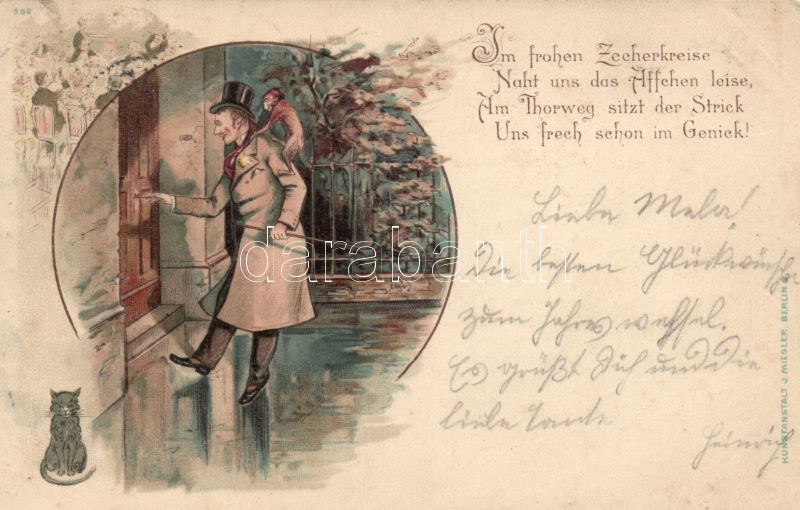 388
Im frohen Zecherkreise
Naht uns das Äffchen leise,
Am Thorweg sitzt der Strick
Uns frech schon im Genick!
Liebe Mela!
Die besten Glückwünsche
zum Jahres wechsel.
Es grüßt Dich und die
liebe Tante
Heinrich
KUNSTANSTALT J. MIESLER, BERLIN S.
darabanth